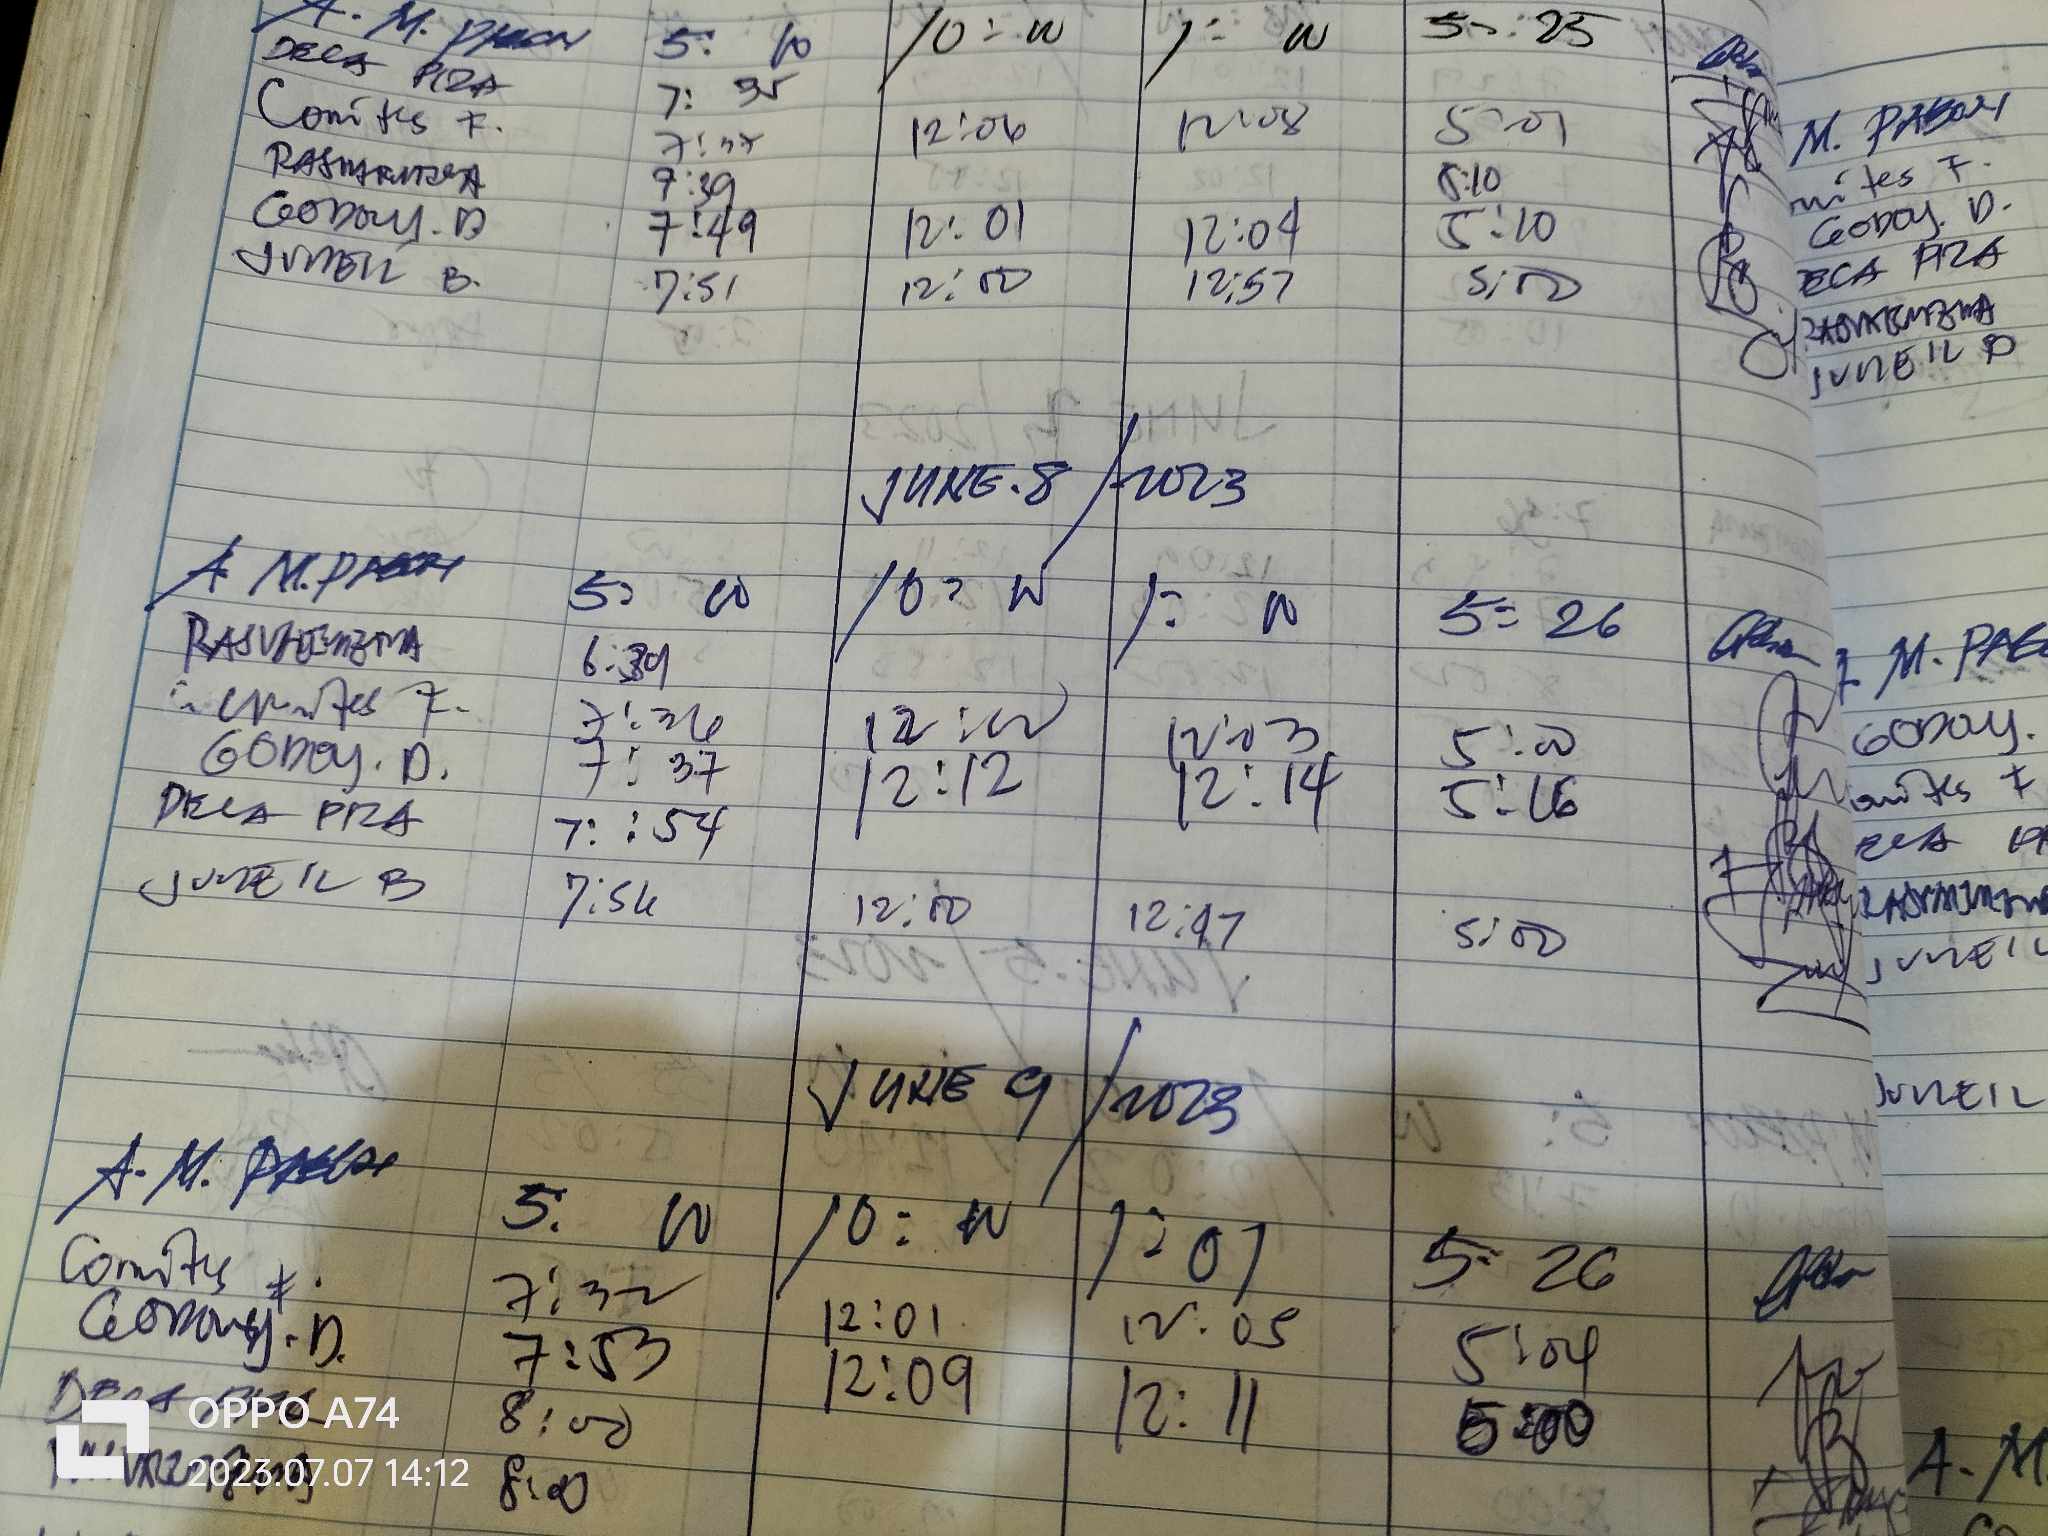 A. M. PABON 5: W 10: W 1: W 5: 25
DECA PIZA 7: 35
Comites F. 7:37 12:06 12:08 5:01
7:39 5:10
GODOY. D 7:49 12:01 12:04 5:10
JUNEIL B. 7:51 12:00 12:57 5:00
JUNE.8/2023
A M. PABON 5: W 10: W 1: W 5: 26
6:39
comites F. 7:36 12:00 12:03 5:00
GODOY. D. 7: 37 12:12 12:14 5:16
DECA PIZA 7::54
JUNEIL B 7:56 12:00 12:47 5:00
JUNE 9/2023
A. M. PABON 5: W 10: W 1: 07 5: 26
Comites F. 7:32 12:01 12:05 5:04
GODOY. D. 7:53 12:09 12:11 5:00
DECA PIZA 8:00
8:00
M. PABON
mites F.
GODOY. D.
ECA PIZA
JUNEIL B
M. PABO
GODOY.
omites F
ECA
JUNEIL
JUNEIL
A. M.
OPPO A74
2023.07.07 14:12